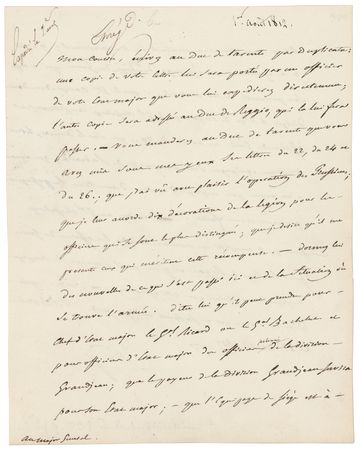 Expédié le 2 août
1er août 1812.
Mon cousin, écrivez au duc de tarente par duplicata;
une copie de votre lettre lui sera portée par un officier
de votre Etat major que vous lui expédierez directement;
l'autre copie sera adressée au duc de Reggio, qui la lui fera
passer. — Vous manderez au duc de tarente que vous
avez mis sous mes yeux ses lettres du 22, du 24 et
du 26., que j'ai vu avec plaisir l'opération des Prussiens;
que je leur accorde dix décorations de la légion, pour les
officiers qui se sont le plus distingués; que je désire qu'il me
présente ceux qui méritent cette récompense. — donnez lui
des nouvelles de ce qui s'est passé ici et de la situation où
se trouve l'armée. dites lui qu'il peut prendre pour
chef d'Etat major le Gal Ricard ou le Gal Bachelu et
pour officiers d'Etat major des officiers de la division
Grandjean; que le payeur de la division Grandjean servira
pour son Etat major; — que l'équipage de siège est à —
au major Général.